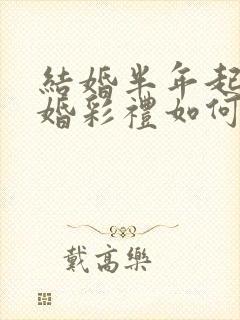 結婚半年起
婚彩禮如何
戴高樂